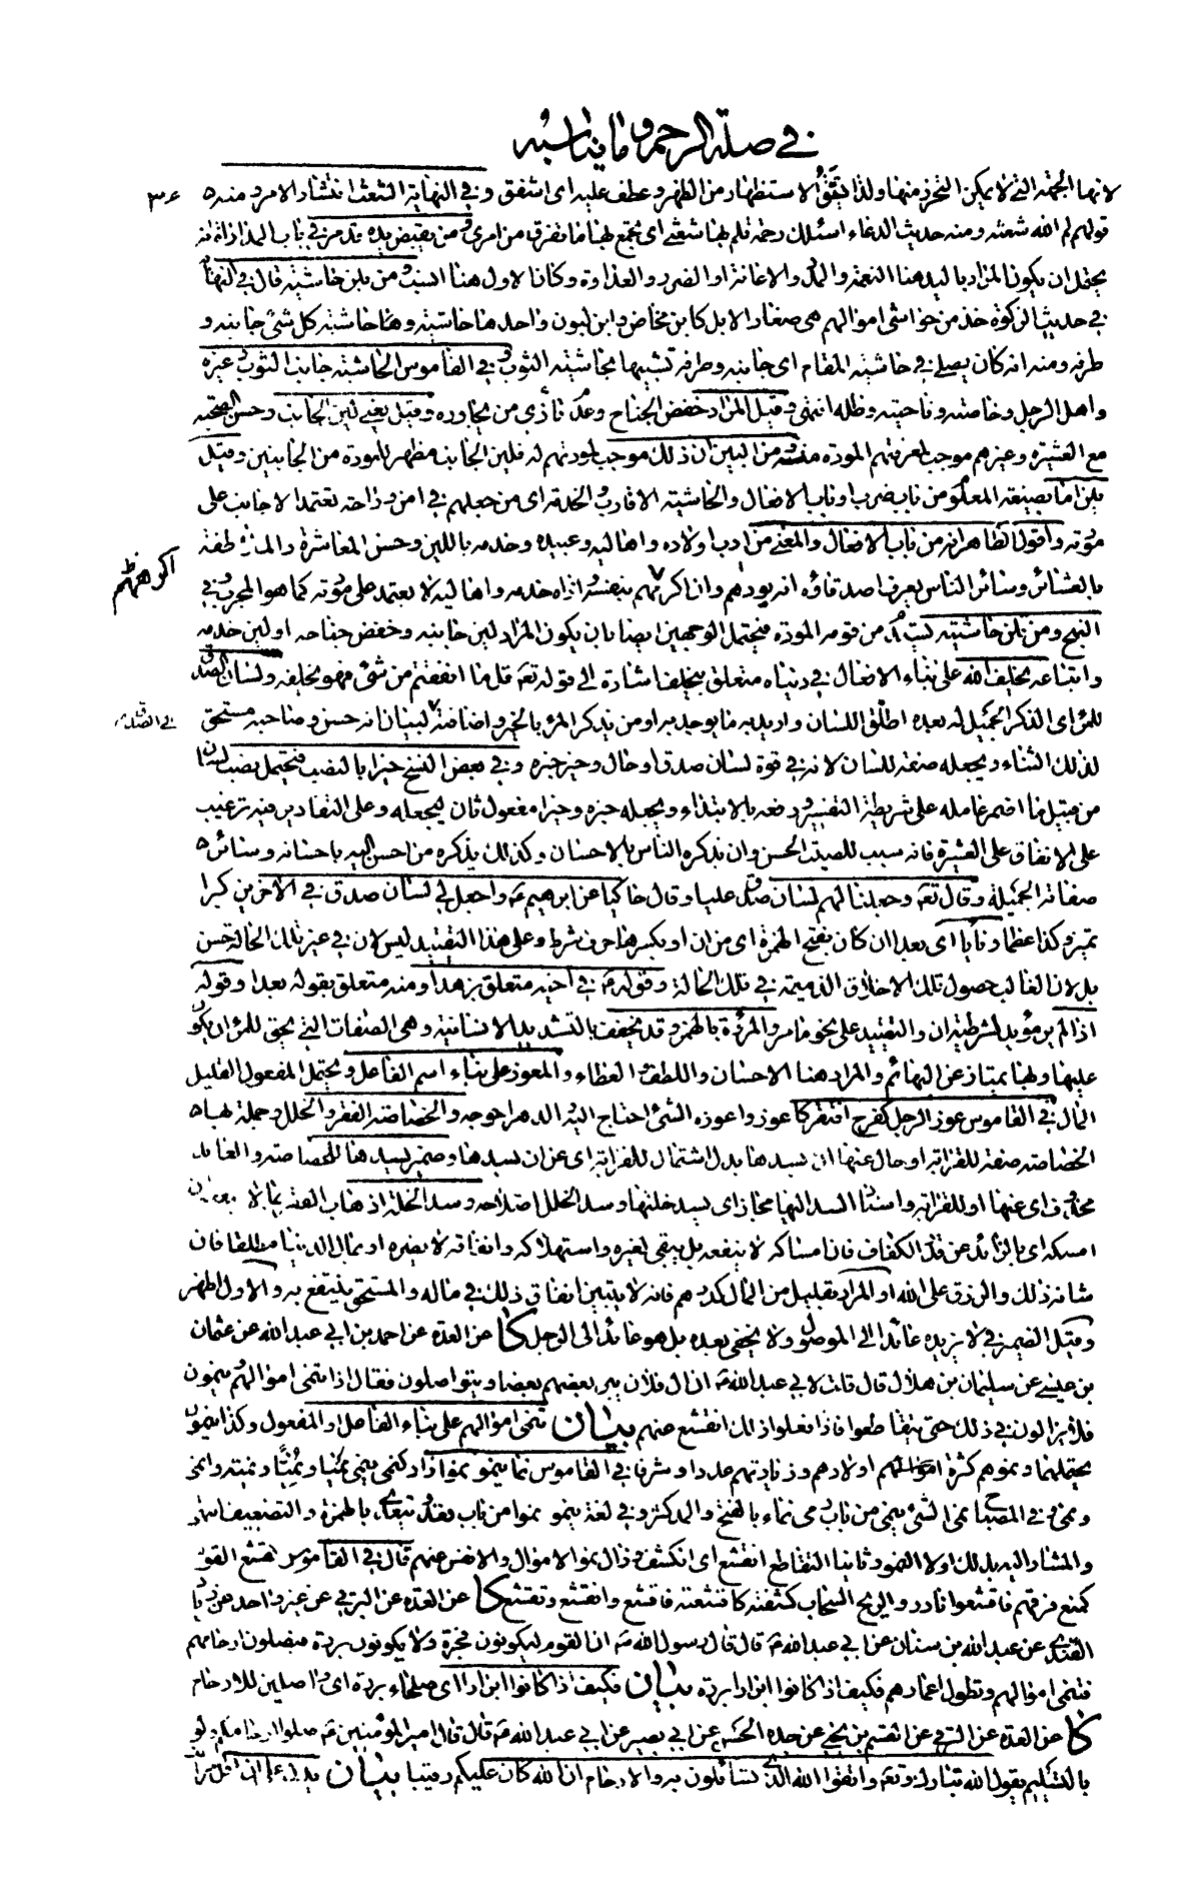 في صلة الرحم وما يناسبه
لانها الجهة التي لا يمكن التحرز منها ولذا الاستظهار من الظهر وعطف عليه اي اشفق وفي النهاية الشعث انتشار الامر ومنه
قولهم لم الله شعثه ومنه حديث الدعاء اسئلك رحمة تلم بها شعثي اي تجمع بها ما تفرق من امري ومن يقبض يده قد مر في باب المداراة انه
يحتمل ان يكون المراد باليد هنا النعمة والمدد والاعانة او الضرر والعداوة وكان الاول هنا انسب ومن يلن حاشيته قال في النهاية
في حديث الزكوة خذ من حواشي اموالهم هي صغار الابل كابن مخاض وابن لبون واحدها حاشية وحاشية كل شئ جانبه و
طرفه ومنه انه كان يصلي في حاشية المقام اي جانبه وطرفه تشبيها بحاشية الثوب وفي القاموس الحاشية جانب الثوب وغيره
واهل الرجل وخاصته وناحيته وظله انتهى وقيل المراد خفض الجناح وعدم تأذي من يجاوره وقيل يعني لين الجانب وحسن الصحبة
مع العشيرة وغيرهم موجب لمعرفتهم المودة منه ومن البين ان ذلك موجب لمودتهم له فلين الجانب مظهر للمودة من الجانبين وقيل
يلن اما بصيغة المعلوم من باب ضرب او باب الافعال والحاشية الاقارب والخدمة اي من جعلهم في امن وراحة تعتمد الاجانب على
مودته واقول الظاهر انه من باب الافعال والمعنى من ادب اولاده واهاليه وعبيده وخدمه باللين وحسن المعاشرة والملاطفة
بالعشائر وسائر الناس يعرف اصدقاؤه انه يودهم وان اكرمهم بنفسه واذاه خدمه واهاليه لا يعتمد على مودته كما هو المجرب وفي
اكرمهم
النهج ومن تلن حاشيته يستدم من قومه المودة فيحتمل الوجهين ايضا بان يكون المراد لين جانبه وخفض جناحه او لين خدمه
واتباعه يخلف الله على بناء الافعال في دنياه متعلق بيخلف اشارة الى قوله تعه قل ما انفقتم من شئ فهو يخلفه ولسان الصدق
للمرء اي الذكر الجميل له بعده اطلق اللسان واريد به ما يوجد به او من يذكر المرء بالخير واضافته لبيان انه حسن وصاحبه مستحق
في الصدق
لذلك الثناء ويجعله صفة للسان لانه في قوة لسان صدق او حال وخير خبره وفي بعض النسخ خيرا بالنصب فيحتمل نصب لسان
من قبيل ما اضمر عامله على شريطة التفسير ورفعه بالابتداء ويجعله خبره وخيرا مفعول ثان ليجعله وعلى التقادير فيه ترغيب
على الانفاق على العشيرة فانه سبب للصيت الحسن وان يذكره الناس بالاحسان وكذلك يذكره من احسن اليه باحسانه وسائر
صفاته الجميلة وقال تعه وجعلنا لهم لسان صدق عليا وقال حاكيا عن ابرهيم ع واجعل لي لسان صدق في الاخرين كبرا
تميز وكذا عظما ونأيا اي بعدا ان كان بفتح الهمزة اي من ان او بكسرها حرف شرط وعلى هذا التقييد ليس لان في غير تلك الحالة حسن
بل لان الغالب حصول تلك الاخلاق الذميمة في تلك الحالة وقوله ع في اخيه متعلق بزهدا ومنه متعلق بقوله بعدا وقوله
اذا لم ير مؤيد لشرطية ان والتقييد على نحو ما مر والمروة بالهمز وقد يخفف بالتشديد الانسانية وهي الصفات التي يحق للمرء ان يكون
عليها وبها يمتاز عن البهائم والمراد هنا الاحسان واللطف والعطاء والمعوز على بناء اسم الفاعل ويحتمل المفعول القليل
المال في القاموس عوز الرجل كفرح افتقر كاعوز واعوزه الشئ احتاج اليه والدهر احوجه والخصاصة الفقر والخلل وجملة بها
الخصاصة صفة للقرابة او حال عنها ان يسدها بدل اشتمال للقرابة اي عن ان يسدها وضمير يسدها للخصاصة والعايد
محذوف اي عنها او للقرابة واسناد السد اليها مجاز اي يسد خلتها وسد الخلل اصلاحه وسد الخلة اذهاب الفقر بما لا
امسكه اي بالزائد عن قدر الكفاف فان امساكه لا ينفعه بل يبقى لغيره واستهلاكه وانفاقه لا يضره او بمال الدنيا مطلقا فان
شانه ذلك والرزق على الله او المراد بقليل من المال كدرهم فانه لا يتبين انفاق ذلك في ماله والمستحق ينتفع به والاول اظهر
وقيل الضمير في لا يزيده عائد الى الموصول ولا يخفى بعده بل هو عائد الى الرجل كا عن العدة عن احمد بن ابي عبد الله عن عثمان
بن عيسى عن سليمان بن هلال قال قلت لابي عبد الله ع ان ال فلان يبر بعضهم بعضا ويتواصلون فقال اذا تنمى اموالهم وينمون
فلا يزالون في ذلك حتى يتقاطعوا فاذا فعلوا ذلك انقشع عنهم بيان تنمى اموالهم على بناء الفاعل او المفعول وكذا ينمون
يحتملهما ونموهم كثرة اولادهم وزيادتهم عددا وشرفا في القاموس نما ينمو نموا زاد كنمى ينمي نميا ونميا ونمية وانمى
ونمى وفي المصباح نمى الشئ ينمي من باب رمى نماء بالفتح والمد كثر وفي لغة ينمو نموا من باب قعد ويتعدى بالهمزة والتضعيف انتهى
والمشار اليه بذلك اولا النمو وثانيا التقاطع انقشع اي انكشف وزال نمو الاموال والانفس عنهم قال في القاموس قشع القوم
كمنع فرقهم فاقشعوا نادر والريح السحاب كشفته كاقشعته فاقشع وانقشع وتقشع كا عن العدة عن البرقي عن غير واحد عن زياد
القندي عن عبد الله بن سنان عن ابي عبد الله ع قال قال رسول الله ص ان القوم ليكونون فجرة ولا يكونون بررة فيصلون ارحامهم
فتنمى اموالهم وتطول اعمارهم فكيف اذا كانوا ابرارا بررة بيان فكيف اذا كانوا ابرارا اي صلحاء بررة اي واصلين للارحام
كا عن العدة عن البرقي عن القسم بن يحيى عن جده الحسن عن ابي بصير عن ابي عبد الله ع قال قال امير المؤمنين ع صلوا ارحامكم ولو
بالتسليم يقول الله تبارك وتعه واتقوا الله الذي تسائلون به والارحام ان الله كان عليكم رقيبا بيان